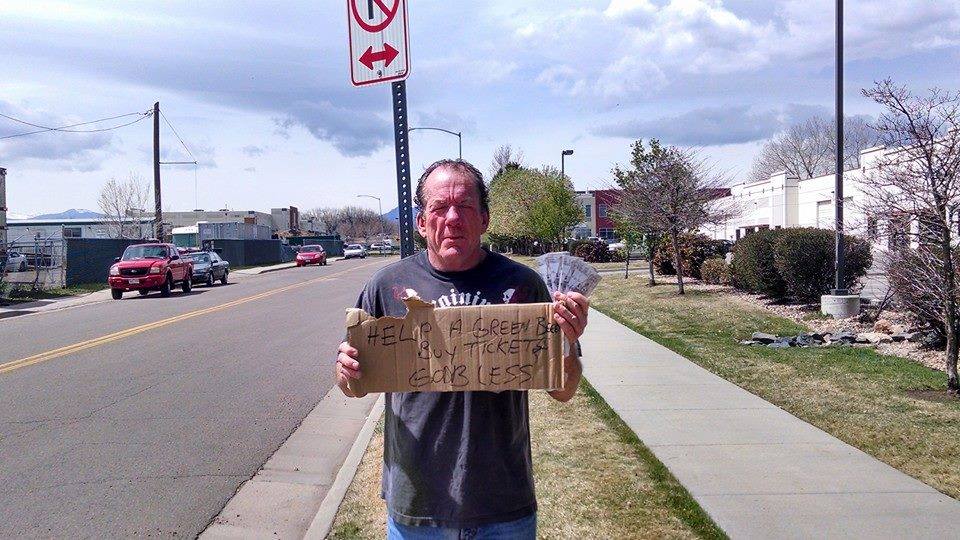 HELP A GREEN
BUY TICKETS
GODBLESS